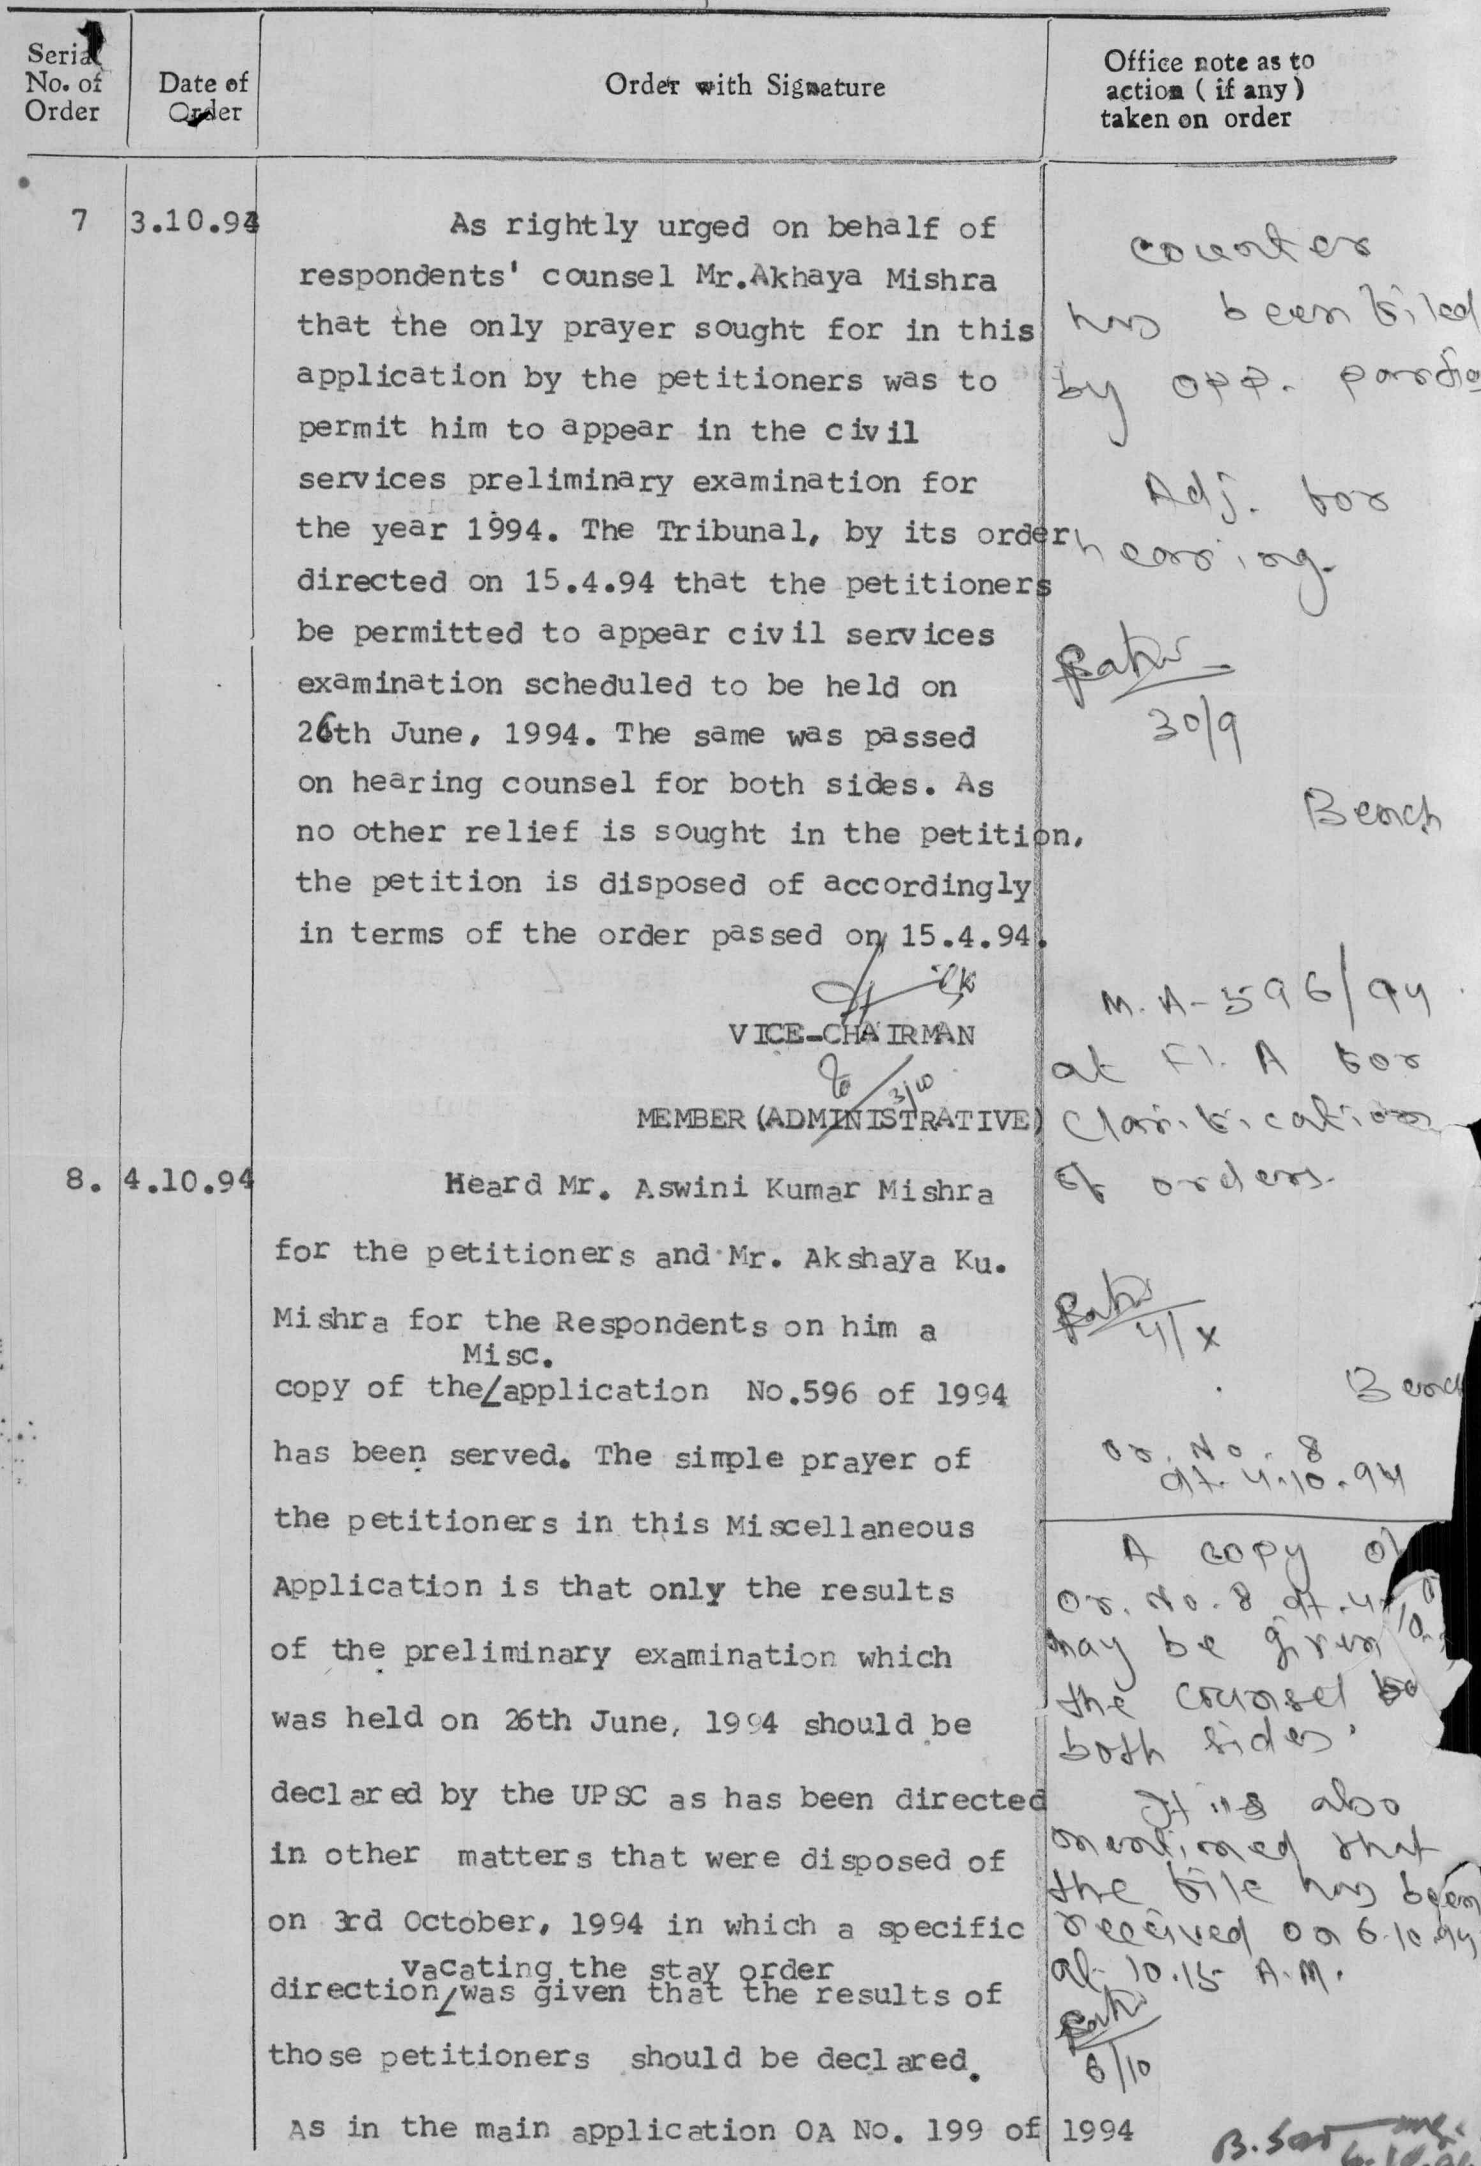 Serial
No. of
Order
Date of
Order
Order with Signature
Office note as to
action ( if any )
taken on order
7
3.10.94
As rightly urged on behalf of
respondents' counsel Mr.Akhaya Mishra
that the only prayer sought for in this
application by the petitioners was to
permit him to appear in the civil
services preliminary examination for
the year 1994. The Tribunal, by its order
directed on 15.4.94 that the petitioners
be permitted to appear civil services
examination scheduled to be held on
26th June, 1994. The same was passed
on hearing counsel for both sides. As
no other relief is sought in the petition,
the petition is disposed of accordingly
in terms of the order passed on 15.4.94.
VICE-CHAIRMAN
3/10
MEMBER (ADMINISTRATIVE)
8.
4.10.94
Heard Mr. Aswini Kumar Mishra
for the petitioners and Mr. Akshaya Ku.
Mishra for the Respondents on him a
Misc.
copy of the/application No.596 of 1994
has been served. The simple prayer of
the petitioners in this Miscellaneous
Application is that only the results
of the preliminary examination which
was held on 26th June, 1994 should be
declared by the UPSC as has been directed
in other matters that were disposed of
on 3rd October, 1994 in which a specific
vacating the stay order
direction/was given that the results of
those petitioners should be declared.
As in the main application OA No. 199 of 1994
counter
has been filed
by opp. parties
Adj. for
hearing.
30/9
Bench
M.A-596/94
at Fl. A for
Clarification
of orders.
4/X
Bench
or. No. 8
dt. 4.10.94
A copy of
or. No. 8 dt. 4.10
may be given
the counsel for
both sides.
It is also
mentioned that
the file has been
received on 6.10.94
at 10.15 A.M.
6/10